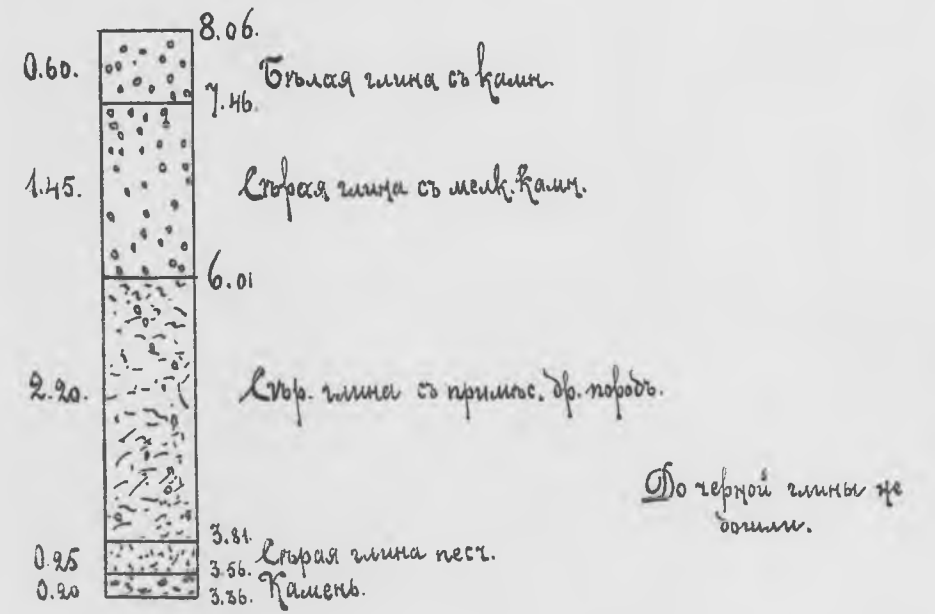 8.06.
0.60. Бѣлая глина съ камн.
7.46.
1.45. Сѣрая глина съ мелк. камн.
6.01
2.20. Сѣр. глина съ примѣс. др. породъ.
До черной глины не
дошли.
3.81.
0.25 Сѣрая глина песч.
3.56.
0.20 Камень.
3.36.